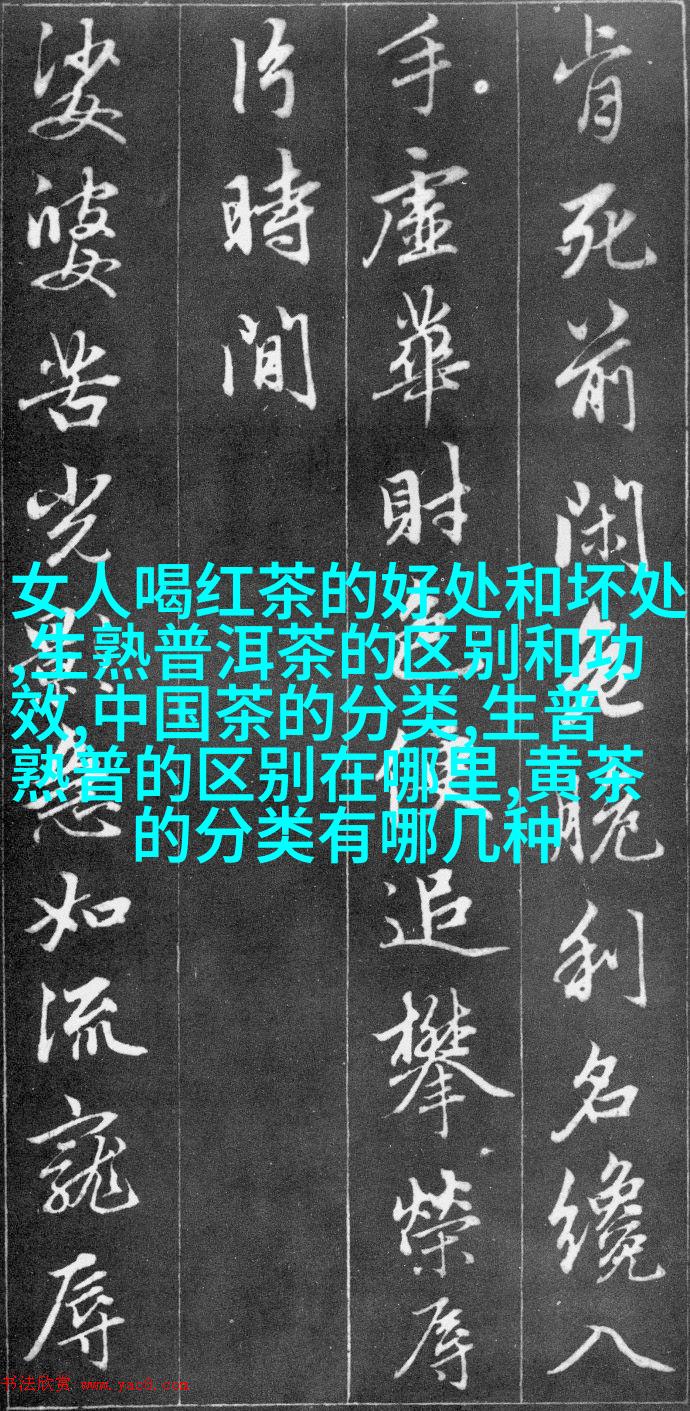 肯死前閑危脆利名纔入
手虛華財色便追攀榮辱
片時間
娑婆苦光影急如流寵辱
女人喝红茶的好处和坏处
,生熟普洱茶的区别和功
效,中国茶的分类,生普
熟普的区别在哪里,黄茶
的分类有哪几种
书法欣赏 www.yac8.com